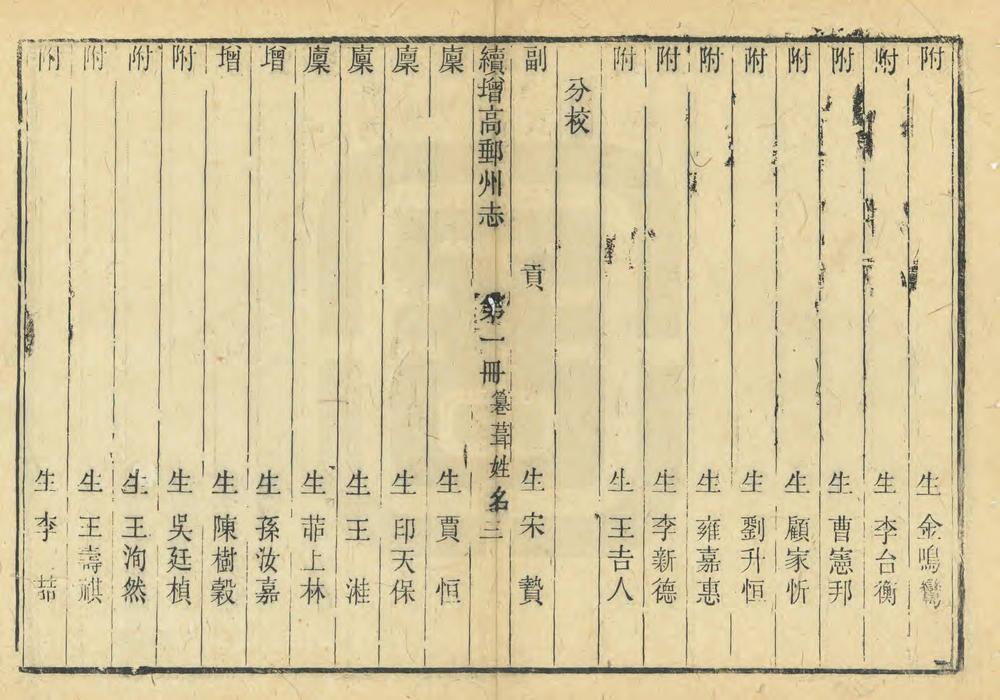 附生金鳴鸞
附生李台衡
附生曹憲邦
附生顧家忻
附生劉升恒
附生雍嘉惠
附生李新德
附生王吉人
分校
副貢生宋贄
續增高郵州志 第一冊 纂葺姓名 三
廩生賈恒
廩生印天保
廩生王溎
廩生茆上林
增生孫汝嘉
增生陳樹穀
附生吳廷楨
附生王洵然
附生王壽祺
附生李喆